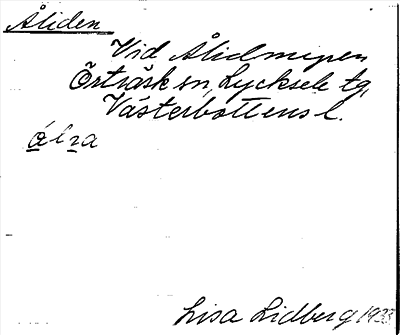 Åliden
Vid Ålidmipen
Örträsk sn, Lycksele tg,
Västerbottens l.
Lisa Lidberg 1933